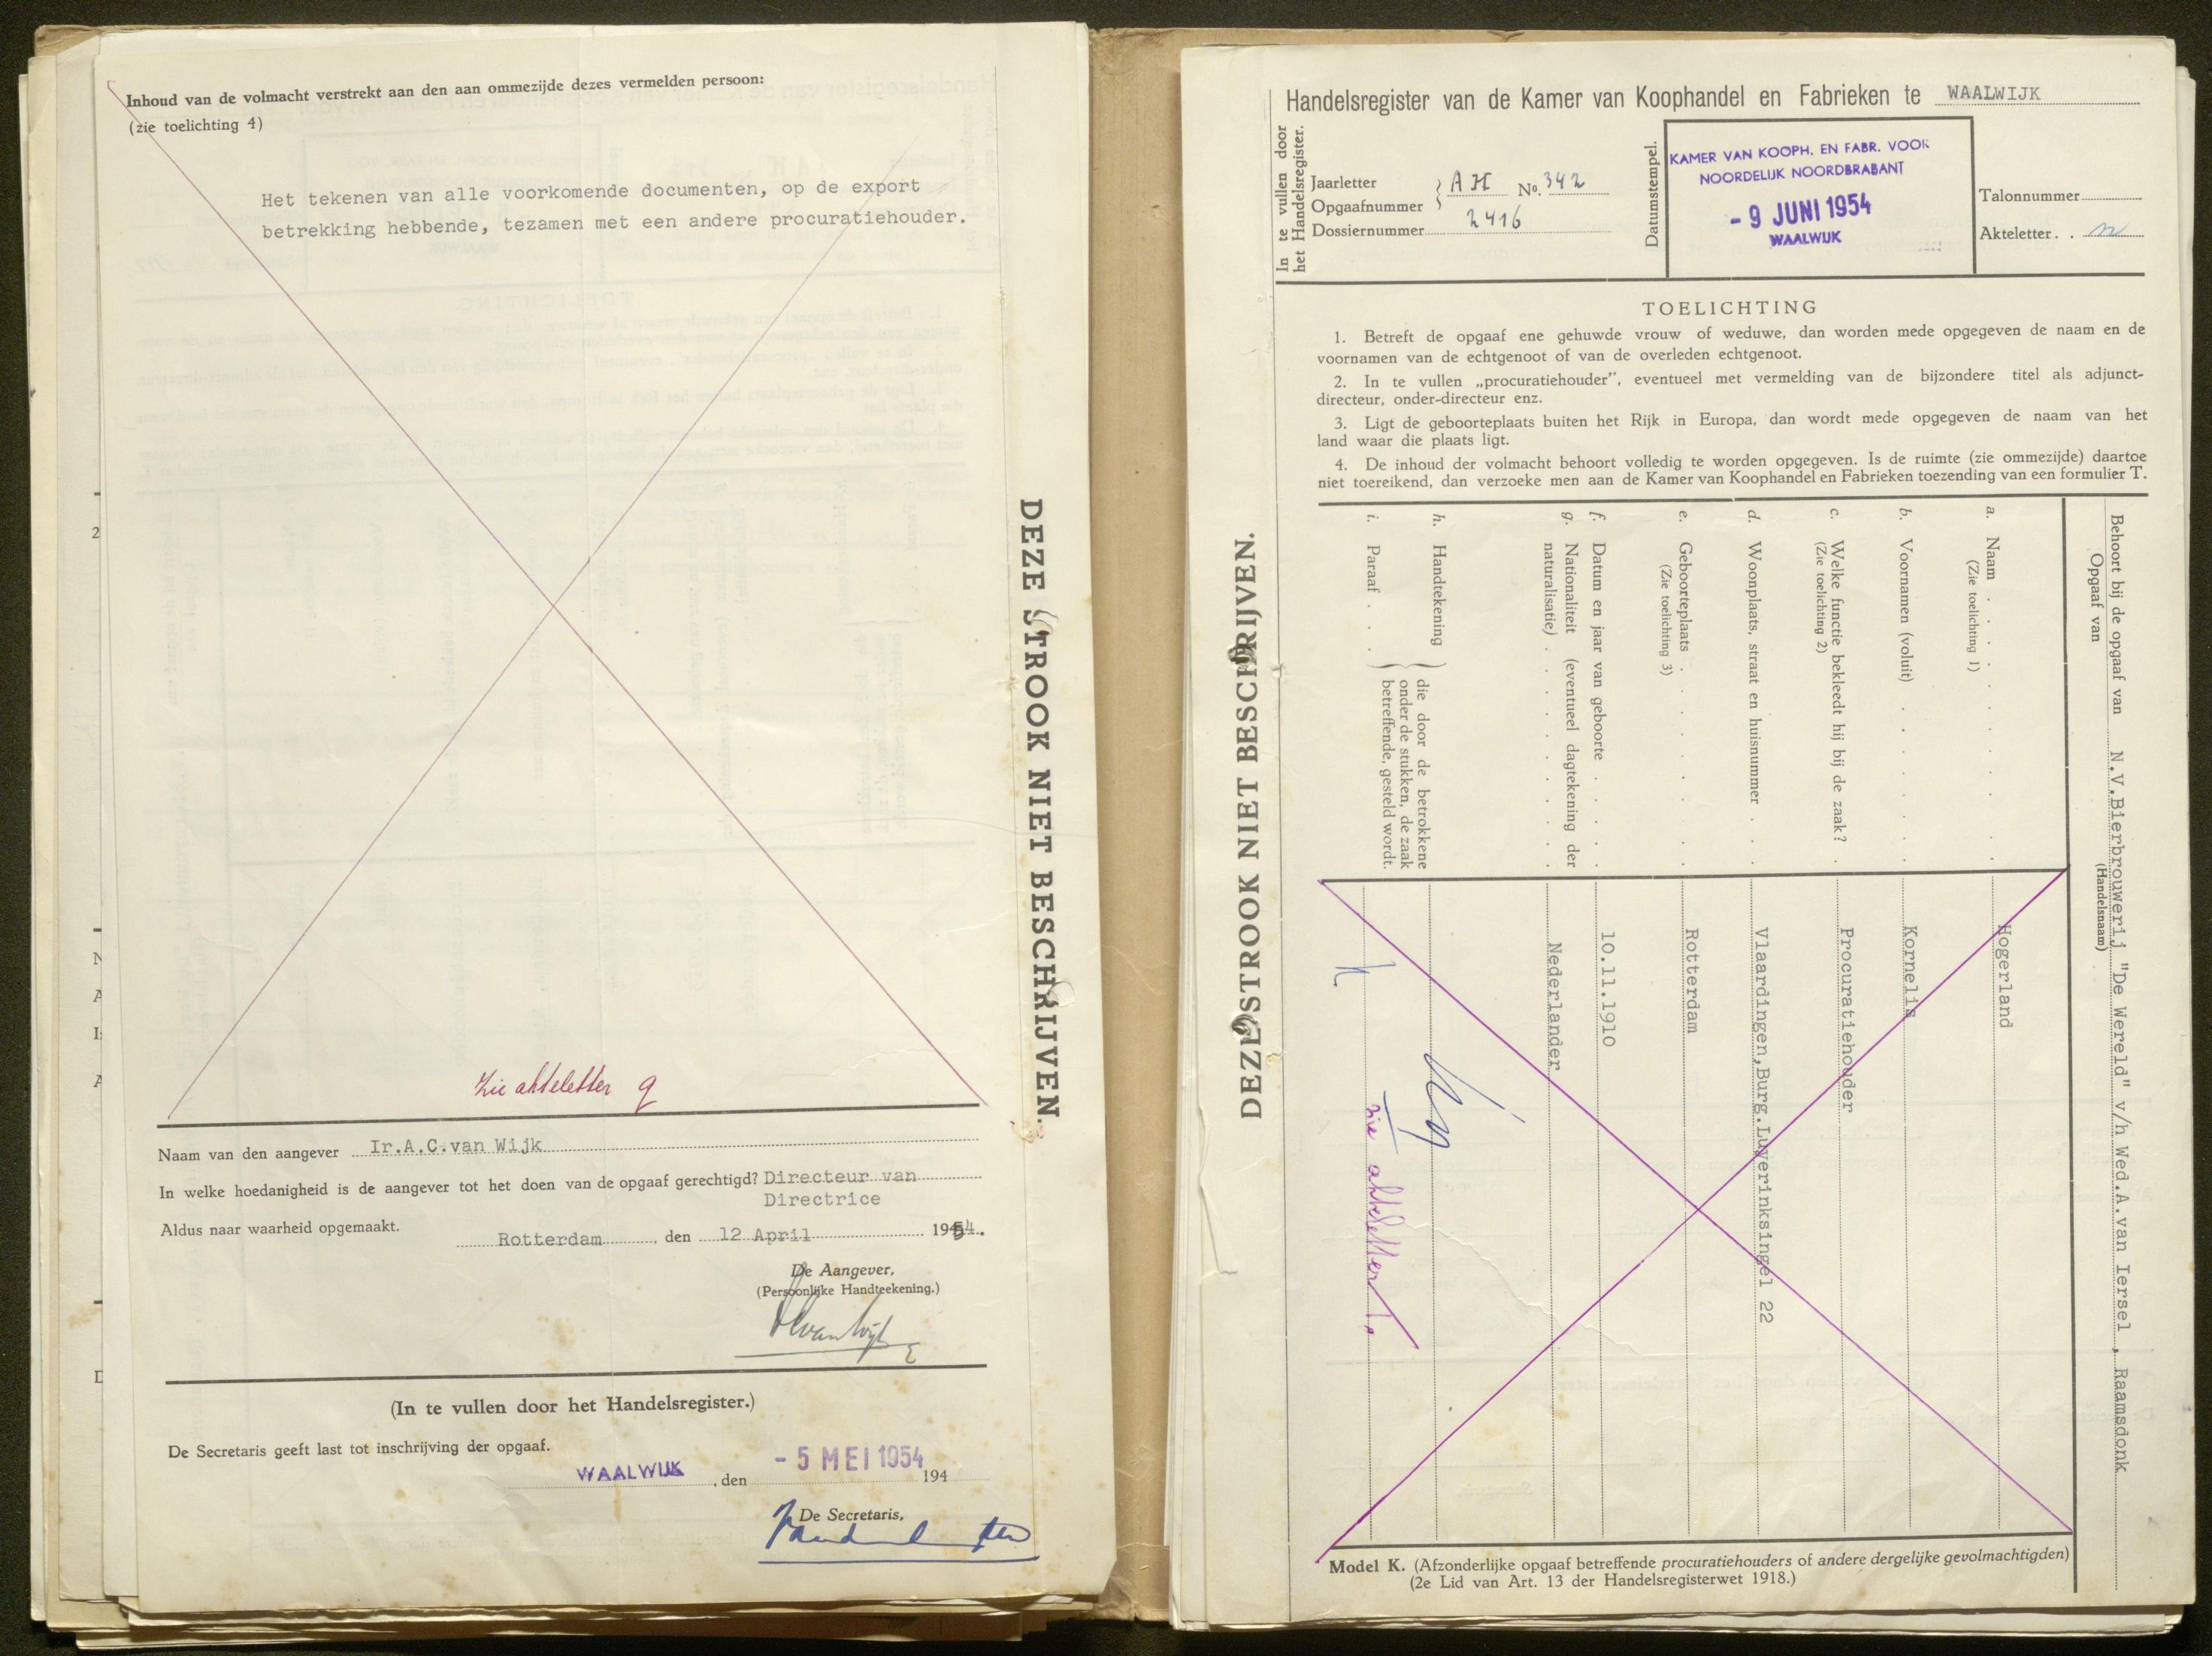 Inhoud van de volmacht verstrekt aan den aan ommezijde dezes vermelden persoon:
(zie toelichting 4)
Het tekenen van alle voorkomende documenten, op de export
betrekking hebbende, tezamen met een andere procuratiehouder.
DEZE STROOK NIET BESCHRIJVEN.
Zie akteletter q
Naam van den aangever Ir.A.C.van Wijk
In welke hoedanigheid is de aangever tot het doen van de opgaaf gerechtigd? Directeur van
Directrice
Aldus naar waarheid opgemaakt.
Rotterdam, den 12 April 1954.
De Aangever,
(Persoonlijke Handteekening.)
(In te vullen door het Handelsregister.)
De Secretaris geeft last tot inschrijving der opgaaf.
WAALWIJK, den - 5 MEI 1954 194
De Secretaris,
DEZE STROOK NIET BESCHRIJVEN.
Handelsregister van de Kamer van Koophandel en Fabrieken te WAALWIJK
In te vullen door
het Handelsregister.
Jaarletter
Opgaafnummer } AH No. 342
Dossiernummer 2416
Datumstempel.
KAMER VAN KOOPH. EN FABR. VOOR
NOORDELIJK NOORDBRABANT
- 9 JUNI 1954
WAALWIJK
Talonnummer
Akteletter . . n
TOELICHTING
1. Betreft de opgaaf ene gehuwde vrouw of weduwe, dan worden mede opgegeven de naam en de
voornamen van de echtgenoot of van de overleden echtgenoot.
2. In te vullen „procuratiehouder”, eventueel met vermelding van de bijzondere titel als adjunct-
directeur, onder-directeur enz.
3. Ligt de geboorteplaats buiten het Rijk in Europa, dan wordt mede opgegeven de naam van het
land waar die plaats ligt.
4. De inhoud der volmacht behoort volledig te worden opgegeven. Is de ruimte (zie ommezijde) daartoe
niet toereikend, dan verzoeke men aan de Kamer van Koophandel en Fabrieken toezending van een formulier T.
Behoort bij de opgaaf van N.V.Bierbrouwerij "De Wereld" v/h Wed.A.van Iersel, Raamsdonk
Opgaaf van
(Handelsnaam)
a. Naam . . . . . . . . Hogerland
(Zie toelichting 1)
b. Voornamen (voluit) . . . . . . Kornelis
c. Welke functie bekleedt hij bij de zaak? . Procuratiehouder
(Zie toelichting 2)
d. Woonplaats, straat en huisnummer . . Vlaardingen,Burg.Luyerinksingel 22
e. Geboorteplaats . . . . . . Rotterdam
(Zie toelichting 3)
f. Datum en jaar van geboorte . . . . 10.11.1910
g. Nationaliteit (eventueel dagtekening der
naturalisatie) . . . . . . . Nederlander
h. Handtekening
i. Paraaf . . .
die door de betrokkene
onder de stukken, de zaak
betreffende, gesteld wordt.
zie akteletter
Model K. (Afzonderlijke opgaaf betreffende procuratiehouders of andere dergelijke gevolmachtigden)
(2e Lid van Art. 13 der Handelsregisterwet 1918.)